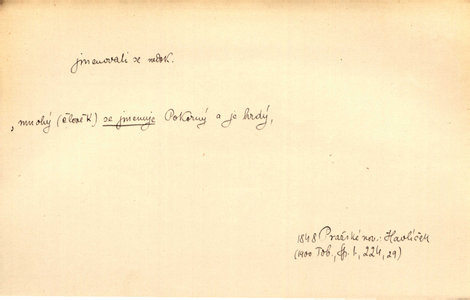 jmenovati se nedok.
„mnohý (člověk) se jmenuje Pokorný a je hrdý,
1848 Pražské nov.: Havlíček
(1900 Tob., Sp. 1, 224, 29)